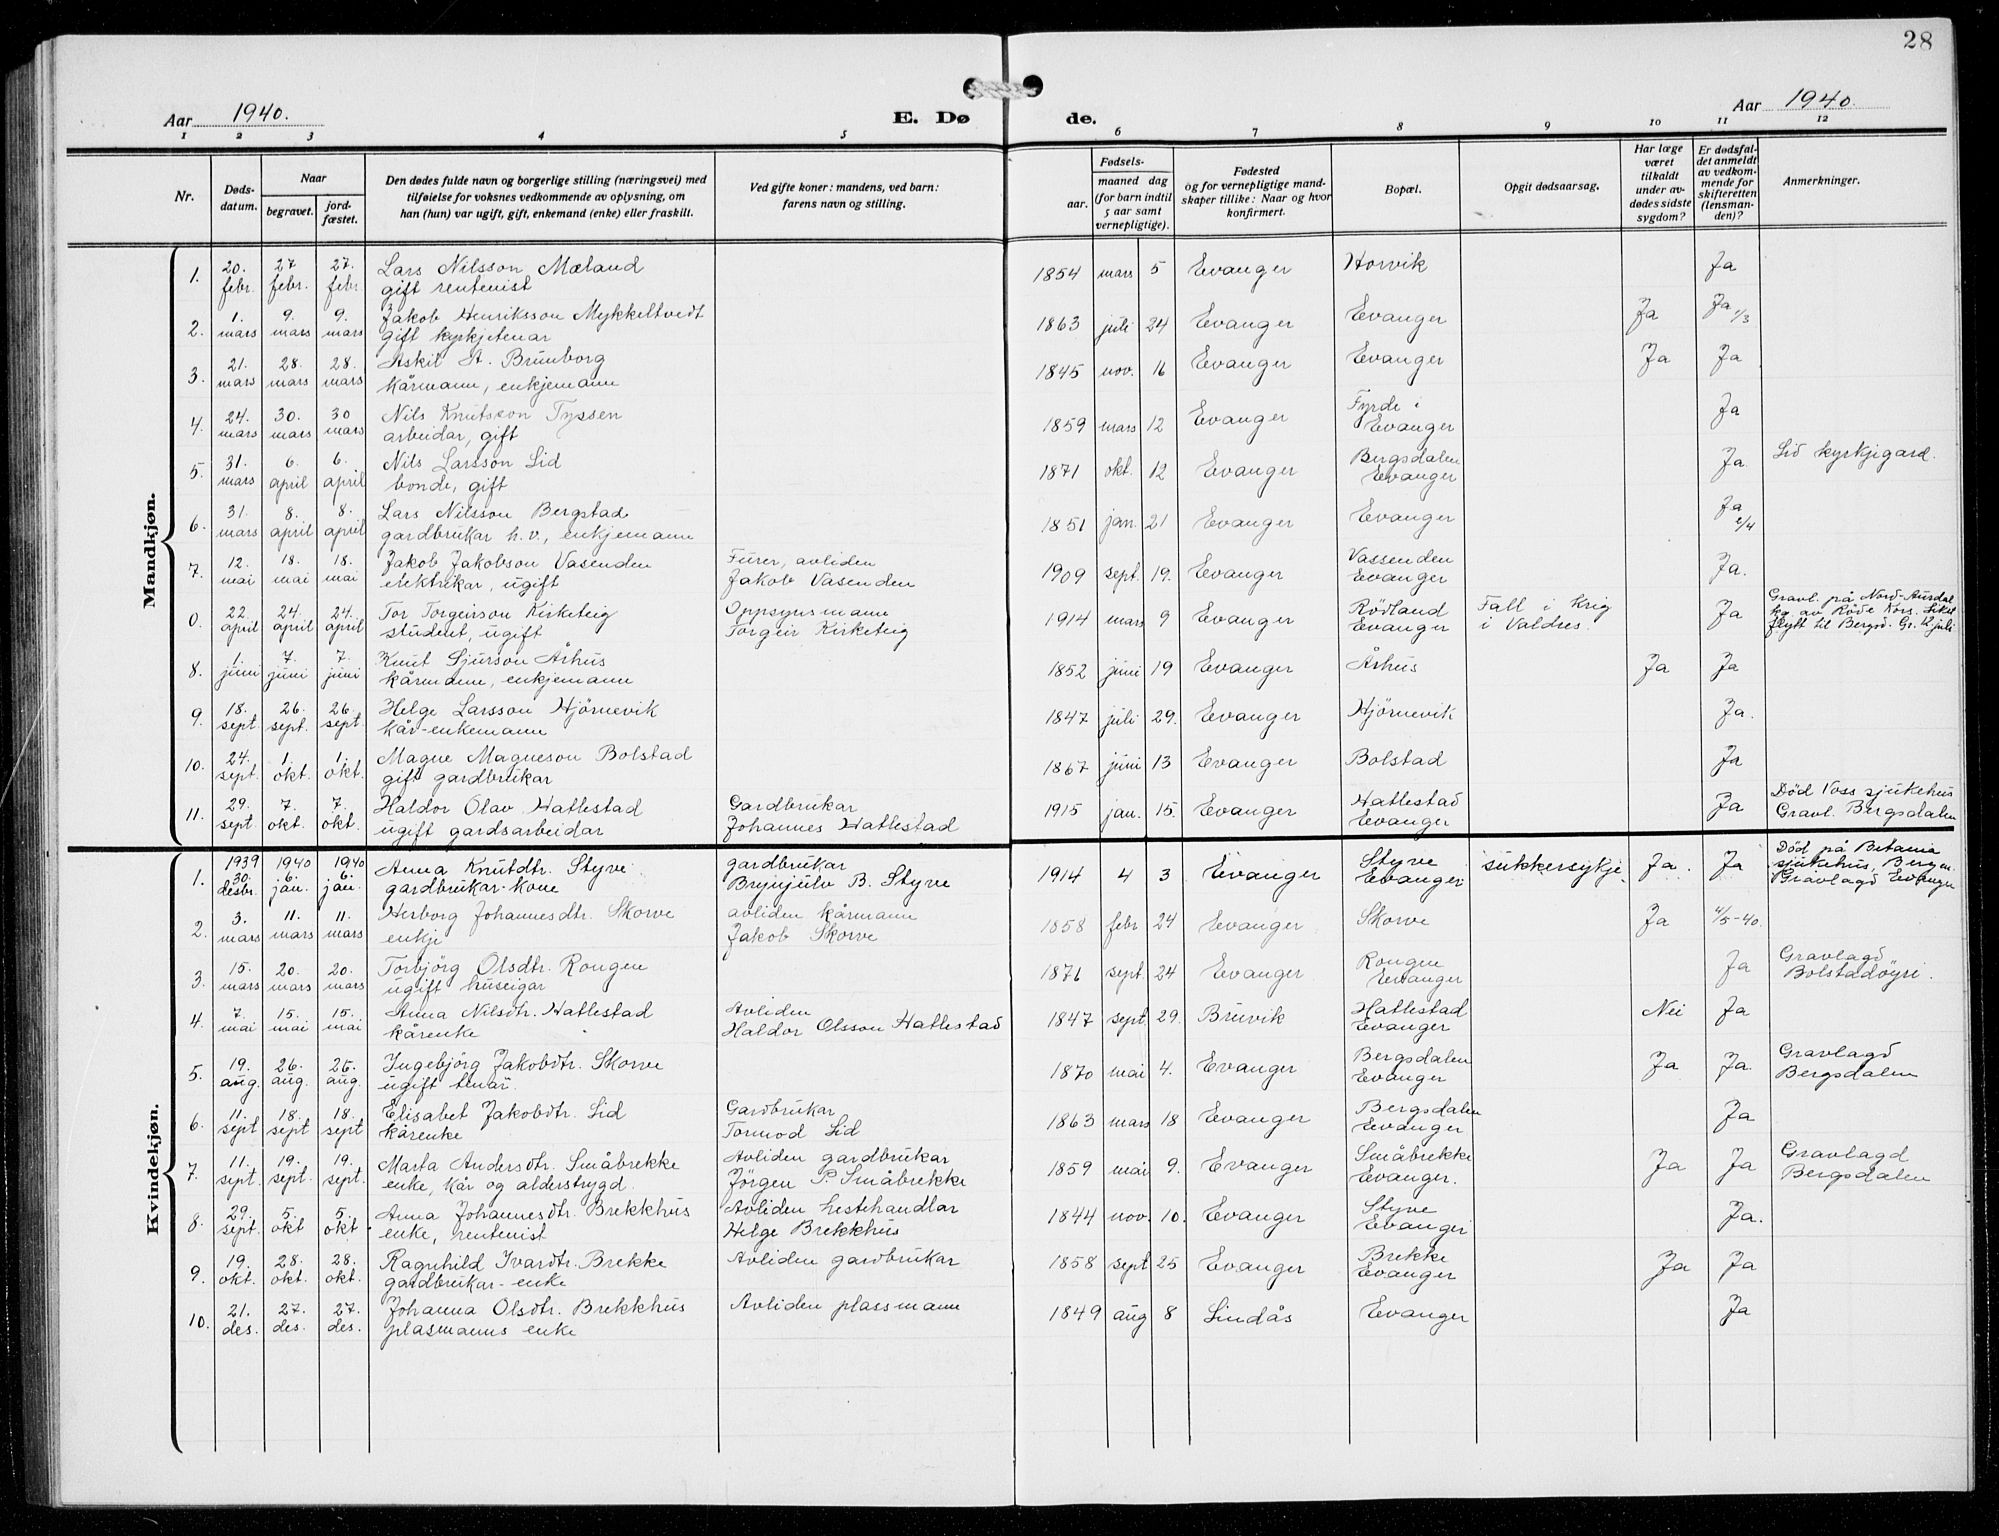 28
Aar 1940.
E. Dø
de.
Aar 1940.
1 2 3 4 5 6 7 8 9 10 11 12
Nr.
Døds-datum.
Naar
begravet.
jord-fæstet.
Den dødes fulde navn og borgerlige stilling (næringsvei) med
tilføielse for voksnes vedkommende av oplysning, om
han (hun) var ugift, gift, enkemand (enke) eller fraskilt.
Ved gifte koner: mandens, ved barn:
farens navn og stilling.
Fødsels-
aar.
maaned dag
(for barn indtil
5 aar samt
vernepligtige).
Fødested
og for vernepligtige mand-
skaper tillike: Naar og hvor
konfirmert.
Bopæl.
Opgit dødsaarsag.
Har læge
været
tilkaldt
under av-
dødes sidste
sygdom?
Er dødsfal-
det anmeldt
av vedkom-
mende for
skifteretten
(lensman-
den)?
Anmerkninger.
Mandkjøn.
1. 20. febr. 27 febr. 27. febr. Lars Nilsson Mæland 1854 mars 5 Evanger Horvik Ja
gift rentenist
2. 1. mars 9. mars 9. mars Jakob Henriksson Mykkeltvedt 1863 juli 24 Evanger Evanger Ja Ja 1/3
gift kyrkjetenar
3. 21. mars 28. mars 28. mars Askil A. Brunborg 1845 nov. 16 Evanger Evanger Ja Ja
kårmann, enkjemann
4. 24. mars 30. mars 30 mars Nils Knutsson Tyssen 1859 mars 12 Evanger Fyrde i Evanger Ja
arbeidar, gift
5. 31. mars 6. april 6. april Nils Larsson Lid 1871 okt. 12 Evanger Bergsdalen Evanger Ja. Lid kyrkjigard.
bonde, gift
6. 31. mars 8. april 8. april Lars Nilsson Bergstad 1851 jan. 21 Evanger Evanger Ja 2/4
gardbrukar h.v., enkjemann
7. 12. mai 18. mai 18. mai Jakob Jakobson Vasenden Furer, avliden 1909 sept. 19. Evanger Vassenden Evanger Ja.
elektrikar, ugift Jakob Vasenden
0. 22. april 24. april 24. april Tor Torgeirson Kirketeig Oppsynsmann 1914 mars 9 Evanger Rödland Evanger Fall i Krig i Valdres. Ja Gravl. på Nord-Aurdal
student, ugift Torgeir Kirketeig kg. av Röde Kors. Liket
flytt til Bergsd. Gr. 12 juli
8. 1. juni 7. juni 7. juni Knut Sjurson Århus 1852 juni 19 Evanger Århus Ja Ja
kårmann, enkjemann
9. 18. sept. 26. sept. 26. sept. Helge Larsson Hjörnevik 1847 juli 29. Evanger Hjörnevik Ja.
kår-enkemann
10. 24. sept. 1. okt. 1. okt. Magne Magneson Bolstad 1867 juni 13 Evanger Bolstad Ja
gift gardbrukar
11. 29. sept 7. okt. 7. okt. Haldor Olav Hatlestad Gardbrukar 1915 jan. 15. Evanger Hatlestad Evanger Ja Död Voss sjukehus
ugift gardsarbeidar Johannes Hatlestad Gravl. Bergsdalen
Kvindekjøn.
1. 1939 30. desbr. 1940 6. jan. 1940 6. jan. Anna Knutdtr. Styve gardbrukar 1914 4 3 Evanger Styve Evanger sukkersykje Ja. Ja Död på Betania
gardbrukar-kone Brynjulv B. Styve sjukehus, Bergen.
Gravlagd Evanger
2. 3. mars 11. mars 11. mars Herborg Johannesdtr. Skorve avliden kårmann 1858 febr 24 Evanger Skorve Ja 4/5-40.
enkji Jakob Skorve
3. 15. mars 20. mars 20. mars Torbjörg Olsdtr. Rongen 1871 sept. 24 Evanger Rongen Evanger Ja Gravlagd
ugift huseigar Bolstadöyri.
4. 7. mai 15. mai 15. mai Anna Nilsdtr. Hatlestad Avliden 1847 sept. 29. Bruvik Hatlestad Evanger Nei Ja
kårenke Haldor Olsson Hatlestad
5. 19. aug. 26. aug. 25. aug. Ingebjörg Jakobdtr. Skorve 1870 mai 4. Evanger Bergsdalen Evanger Ja Ja. Gravlagd
ugift tenar. Bergsdalen
6. 11. sept 18. sept 18. sept Elisabet Jakobdtr. Lid Gardbrukar 1863 mars 18 Evanger Bergsdalen Evanger Ja
kårenke Tormod Lid
7. 11. sept. 19. sept. 19. sept. Marta Andersdtr. Småbrekke Avliden gardbrukar 1859 mai 9. Evanger Småbrekke Evanger. Ja Ja Gravlagd
enke, kår og alderstrygd. Jörgen P. Småbrekke Bergsdalen
8. 29. sept. 5. okt 5. okt Anna Johannesdtr. Brekkhus Avliden hestehandlar 1844 nov. 10. Evanger Styve Evanger Ja.
enke, rentenist Helge Brekkhus
9. 19. okt. 28. okt. 28. okt. Ragnhild Ivardtr. Brekke Avliden gardbrukar 1858 sept 25 Evanger Brekke Evanger Ja Ja
gardbrukar-enke
10. 21. des. 27. des. 27. des. Johanna Olsdtr. Brekkhus Avliden plassmann 1849 aug 8 Lindås Evanger Ja
plasmanns enke